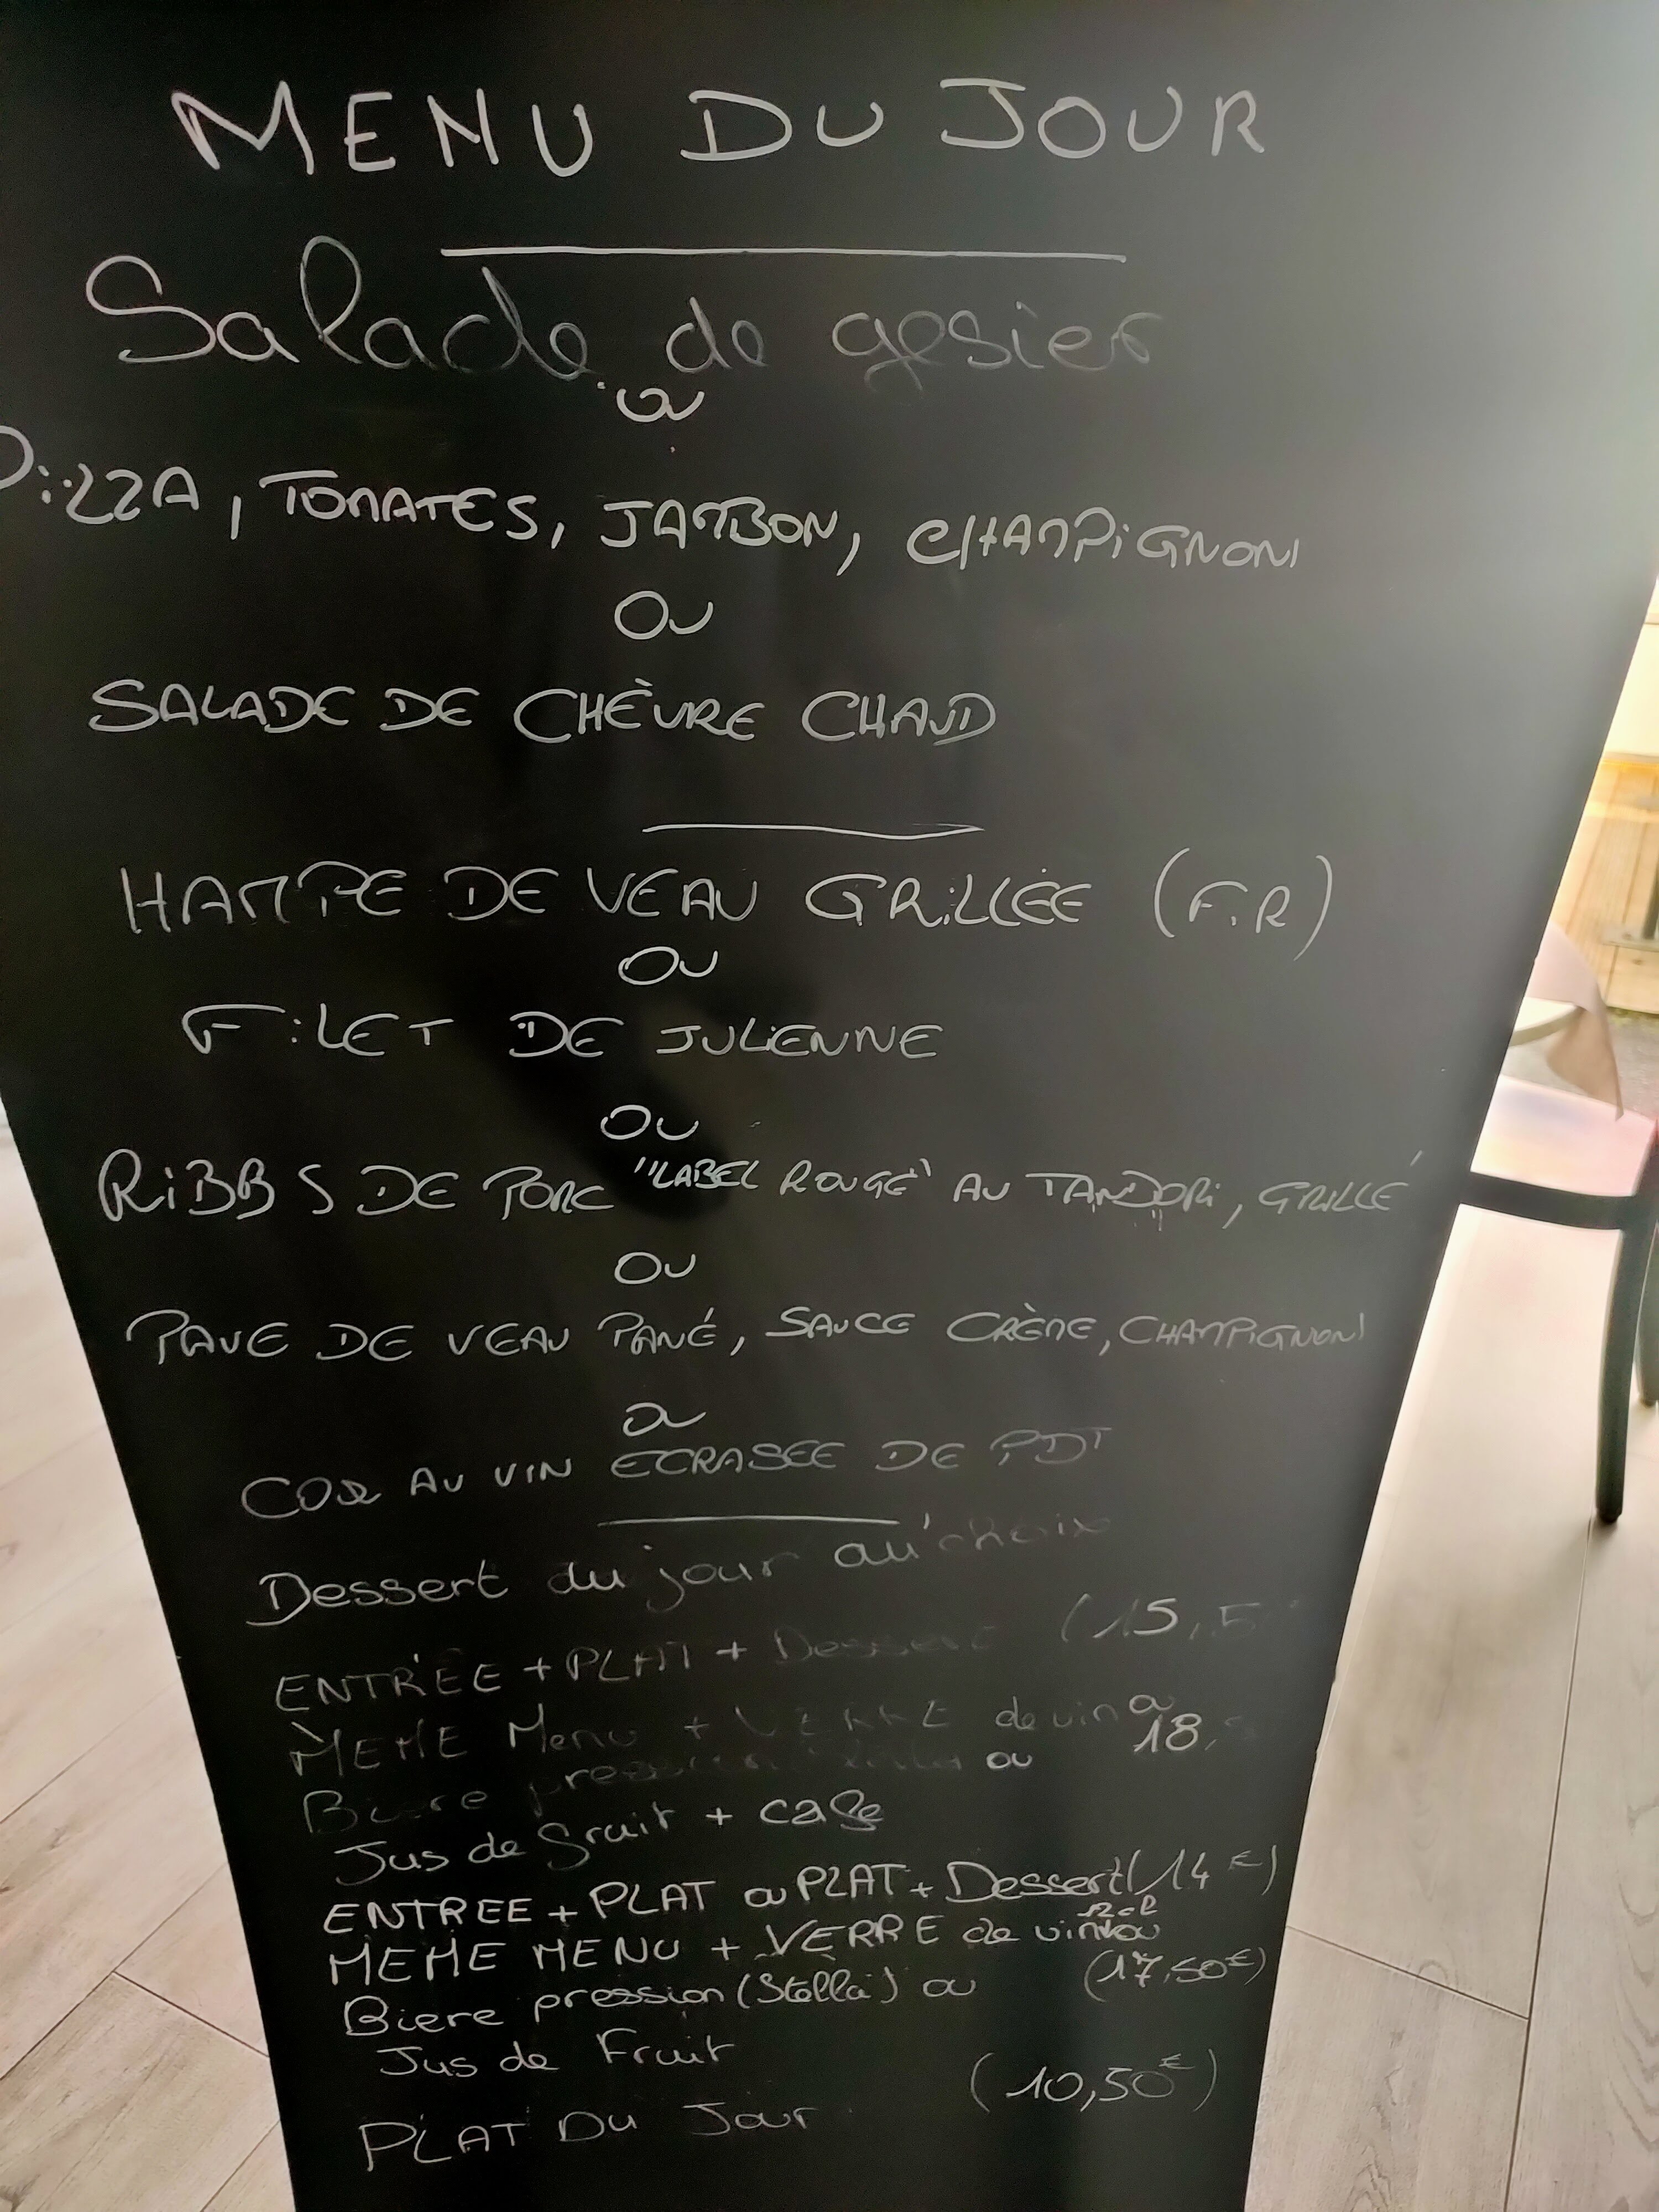 MENU DU JOUR
Salade de gesier
ou
PiZZA, TOMATES, JAMBON, CHAMPiGNONS
OU
SALADE DE CHÈVRE CHAUD
HAMPE DE VEAU GRiLLÉE (F.R)
OU
FiLET DE JULIENNE
OU
RiBBS DE PORC "LABEL ROUGE" AU TANDORi, GRILLÉ
OU
PAVE DE VEAU PANÉ, SAUCE CRÈME, CHAMPIGNONS
ou
COQ AU VIN ECRASEE DE PDT
Dessert du jour au choix
ENTRÉE + PLAT + Dessert (15,5
MEME Menu + VERRE de vin ou
18,
Biere pression ou
Jus de fruit + cafe
ENTREE + PLAT ou PLAT + Dessert (14 €)
MEME MENU + VERRE de vin 12cl ou
Biere pression (Stella) ou (17,50€)
Jus de Fruit
PLAT DU Jour (10,50€)